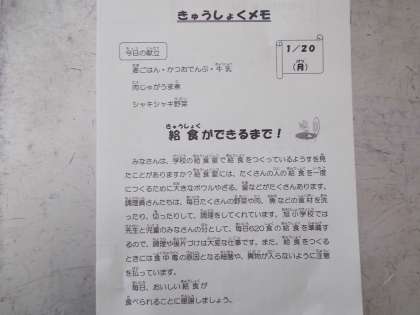 きゅうしょくメモ
今日の献立
1／20
（月）
麦ごはん・かつおでんぶ・牛乳
肉じゃがうま煮
シャキシャキ野菜
給食ができるまで！
みなさんは、学校の給食室で給食をつくっているようすを見
たことがありますか？給食室には、たくさんの人の給食を一度
につくるために大きなボウルやざる、釜などがたくさんあります。
調理員さんたちは、毎日たくさんの野菜や肉、魚などの食材を洗
ったり、切ったりして、調理をしてくれています。旭小学校では
先生と児童のみなさんの分として、毎日620食の給食を準備す
るので、調理や後片づけは大変な仕事です。また、給食をつくる
ときには食中毒の原因となる細菌や、異物が入らないように注意
を払っています。
毎日、おいしい給食が
食べられることに感謝しましょう。